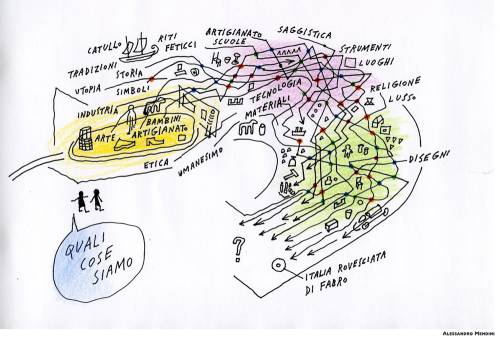 CATULLO
RITI
FETICCI
ARTIGIANATO
SCUOLE
SAGGISTICA
TRADIZIONI
STORIA
STRUMENTI
LUOGHI
UTOPIA
SIMBOLI
TECNOLOGIA
MATERIALI
RELIGIONE
LUSSO
INDUSTRIA
BAMBINI
ARTE
ARTIGIANATO
ETICA
UMANESIMO
DISEGNI
QUALI
COSE
SIAMO
?
ITALIA ROVESCIATA
DI FABRO
ALESSANDRO MENDINI